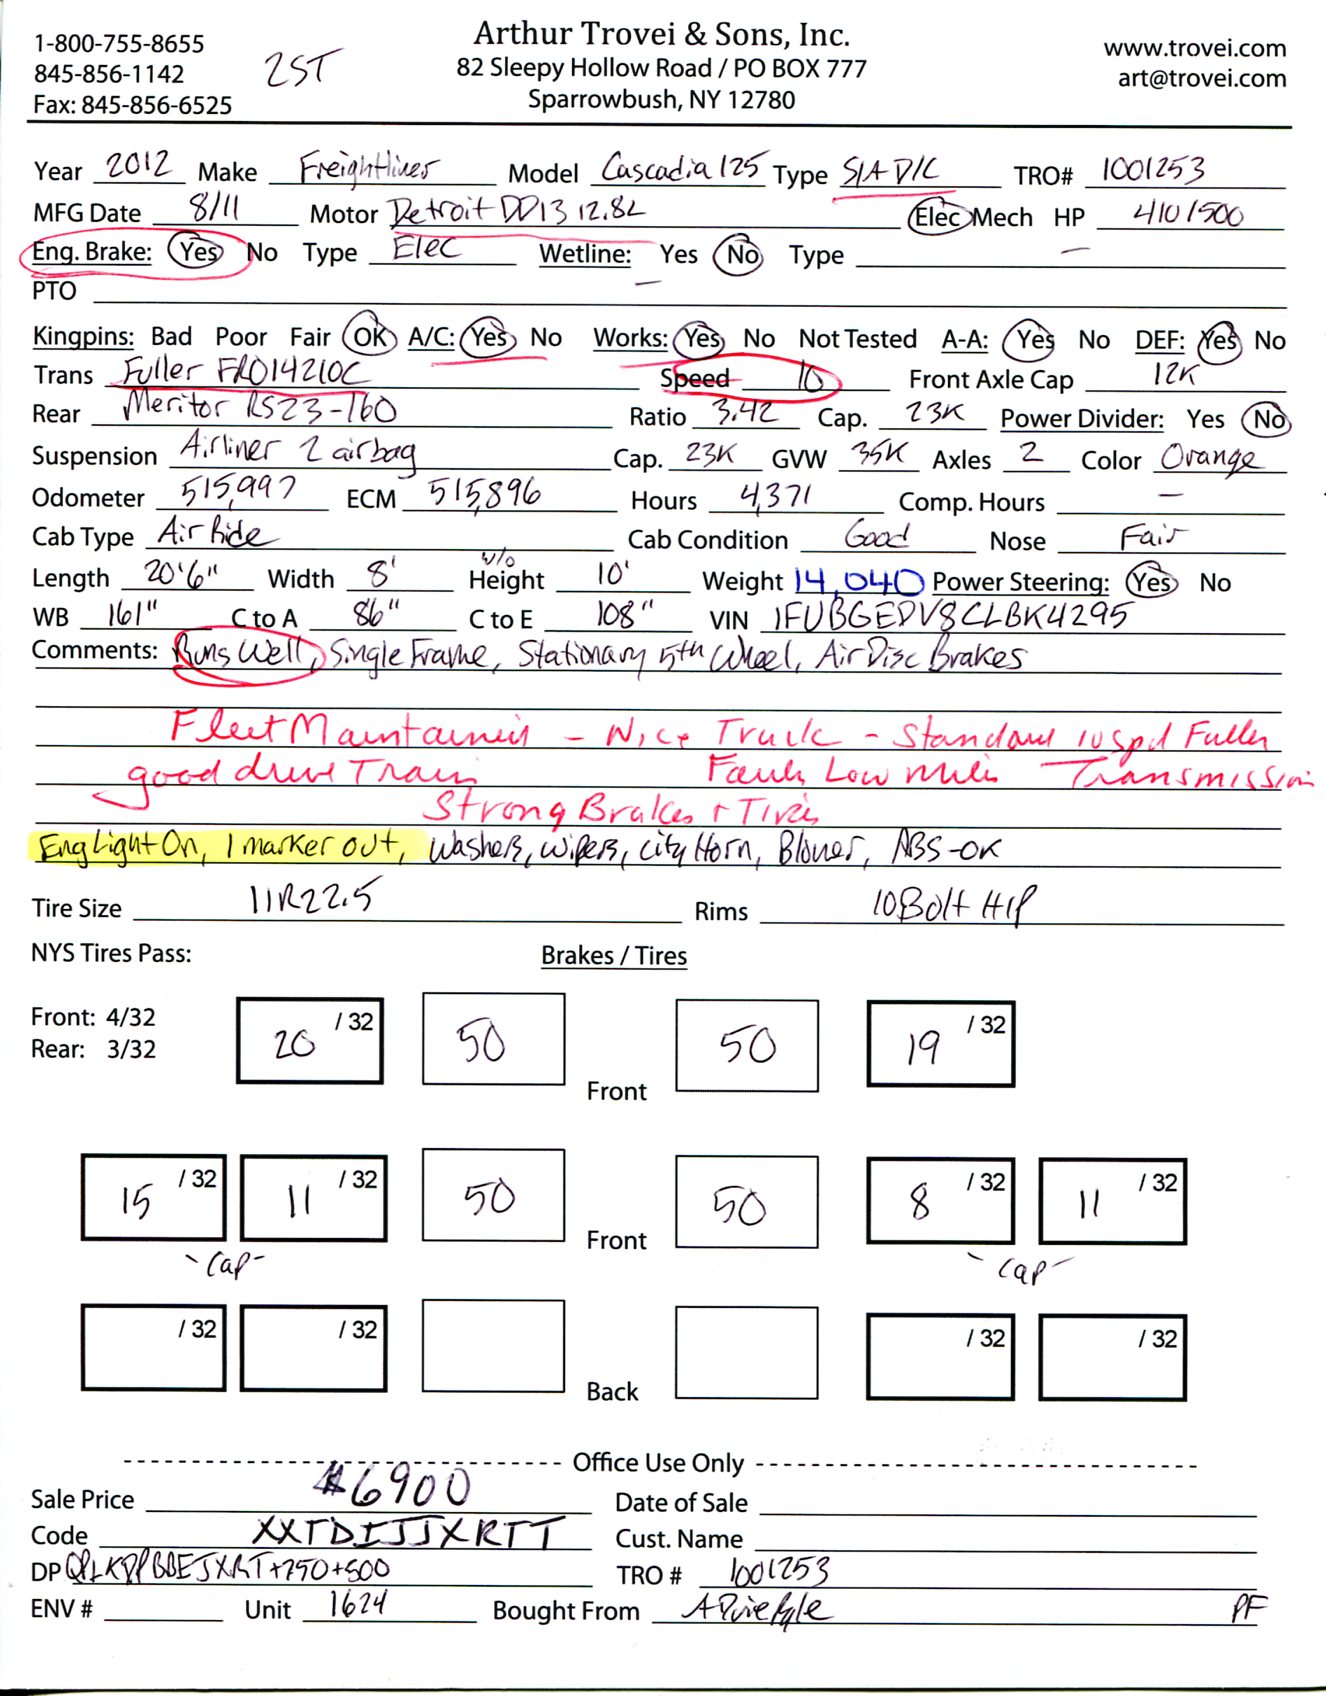 1-800-755-8655
845-856-1142
Fax: 845-856-6525
2ST
Arthur Trovei & Sons, Inc.
82 Sleepy Hollow Road / PO BOX 777
Sparrowbush, NY 12780
www.trovei.com
art@trovei.com
Year 2012 Make Freightliner Model Cascadia 125 Type S/A D/C TRO# 1001253
MFG Date 8/11 Motor Detroit DD13 12.8L Elec Mech HP 410/500
Eng. Brake: Yes No Type Elec Wetline: Yes No Type —
PTO —
Kingpins: Bad Poor Fair OK A/C: Yes No Works: Yes No Not Tested A-A: Yes No DEF: Yes No
Trans Fuller FRO14210C Speed 10 Front Axle Cap 12K
Rear Meritor RS23-160 Ratio 3.42 Cap. 23K Power Divider: Yes No
Suspension Airliner 2 airbag Cap. 23K GVW 35K Axles 2 Color Orange
Odometer 515,997 ECM 515,896 Hours 4,371 Comp. Hours —
Cab Type Air Ride Cab Condition Good Nose Fair
Length 20'6" Width 8' w/o Height 10' Weight 14,040 Power Steering: Yes No
WB 161" C to A 86" C to E 108" VIN 1FUBGEDV8CLBK4295
Comments: Runs Well, Single Frame, Stationary 5th Wheel, Air Disc Brakes
Fleet Maintained - Nice Truck - Standard 10 spd Fuller
good drive Train Low miles Transmission
Strong Brakes + Tires
Eng Light On, 1 marker out, Washers, Wipers, City Horn, Blower, ABS-OK
Tire Size 11R22.5 Rims 10 Bolt H/P
NYS Tires Pass: Brakes / Tires
Front: 4/32
Rear: 3/32
20 /32 50 50 19 /32
Front
15 /32 11 /32 50 50 8 /32 11 /32
Front
-Cap- -Cap-
/32 /32 /32 /32
Back
Office Use Only
Sale Price $6900 Date of Sale
Code XXTDIJJXRTT Cust. Name
DP +750+500 TRO # 1001253
ENV # Unit 1624 Bought From PF